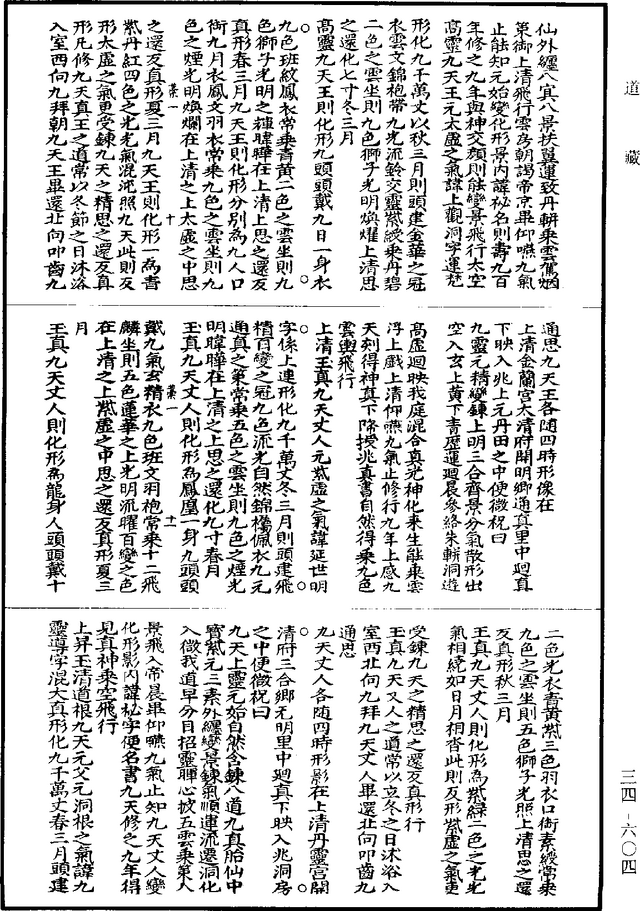 道藏
仙外纏八宜八景扶翼運致丹軿乘雲駕烟
策御上清飛行雲房朝謁帝京畢仰嚥九氣
止能知元始變化形景內諱秘名則壽九百
年修之九年與神交顏則能變景飛行太空
高靈九天王元太虛之氣諱上觀洞字運梵
形化九千萬丈以秋三月則頭建金華之冠
衣雲文錦袍帶九光流鈴交靈紫綬乘丹碧
二色之雲坐則九色獅子光明煥燿上清思
之還化七寸冬三月
高靈九天王則化形九頭頭戴九日一身衣
九色班紋鳳衣常乘青黃二色之雲坐則九
色獅子光明之煙暐曄在上清上思之還反
真形春三月九天王則化形分別為九人口
銜九月衣鳳文羽衣常乘九色之雲坐則九
色之煙光明煥爛在上清之上太虛之中思
素一 十
之還反真形夏三月九天王則化形一為青
紫丹紅四色之光光氣混沌照九天此則反
形太虛之氣更受鍊九天之精思之還反真
形凡修九天真王之道常以冬節之日沐浴
入室西向九拜朝九天王畢還北向叩齒九
通思九天王各隨四時形像在
上清金蘭宮太清府開明鄉通真里中迴真
下映入兆上元丹田之中便微祝曰
九靈元精變鍊上明三合齊景分氣散形出
空入玄上黃下青歷運迴晨參絡朱軿洞遊
高虛迴映我庭混合真光神化來生能乘雲
浮上戲上清仰嚥九氣止修行九年上感九
天刻得神真下降授兆真書自然得乘九色
雲輿飛行
上清玉真九天丈人元紫虛之氣諱延世明
字係上連形化九千萬丈冬三月則頭建飛
精百變之冠九色流光自然錦襦佩衣九元
通真之策常乘五色之雲坐則九色之煙光
明暐曄在上清之上思之還化九寸春月
王真九天丈人則化形為鳳凰一身九頭頭
素一 十一
戴九氣玄精衣九色班文羽袍常乘十二飛
麟坐則五色蓮華之上光明流曜百變之色
在上清之上紫虛之中思之還反真形夏三
月
王真九天丈人則化形為龍身人頭頭戴十
二色光衣青黃紫三色羽衣口銜素綬常乘
九色之雲坐則五色獅子光照上清思之還
反真形秋三月
王真九天丈人則化形為紫綠二色之光光
氣相繞如日月相沓此則反形紫虛之氣更
受鍊九天之精思之還反真形行
玉真九天丈人之道常以立冬之日沐浴入
室西北向九拜九天丈人畢還北向叩齒九
通思
九天丈人各隨四時形影在上清丹靈宮開
清府三合鄉元明里中迴真下映入兆洞房
之中便微祝曰
九天上靈元始自然含鍊八道九真胎仙中
寶紫元三素外纏變景鍊氣順運流還洞化
入微我道早分目招靈暉心披五雲乘策人
景飛入帝晨畢仰嚥九氣止知九天丈人變
化形影內諱秘字便名書九天修之九年得
見真神乘空飛行
上昇玉清道根九天元父元洞根之氣諱九
靈導字混大真形化九千萬丈春三月頭建
三四-六〇四